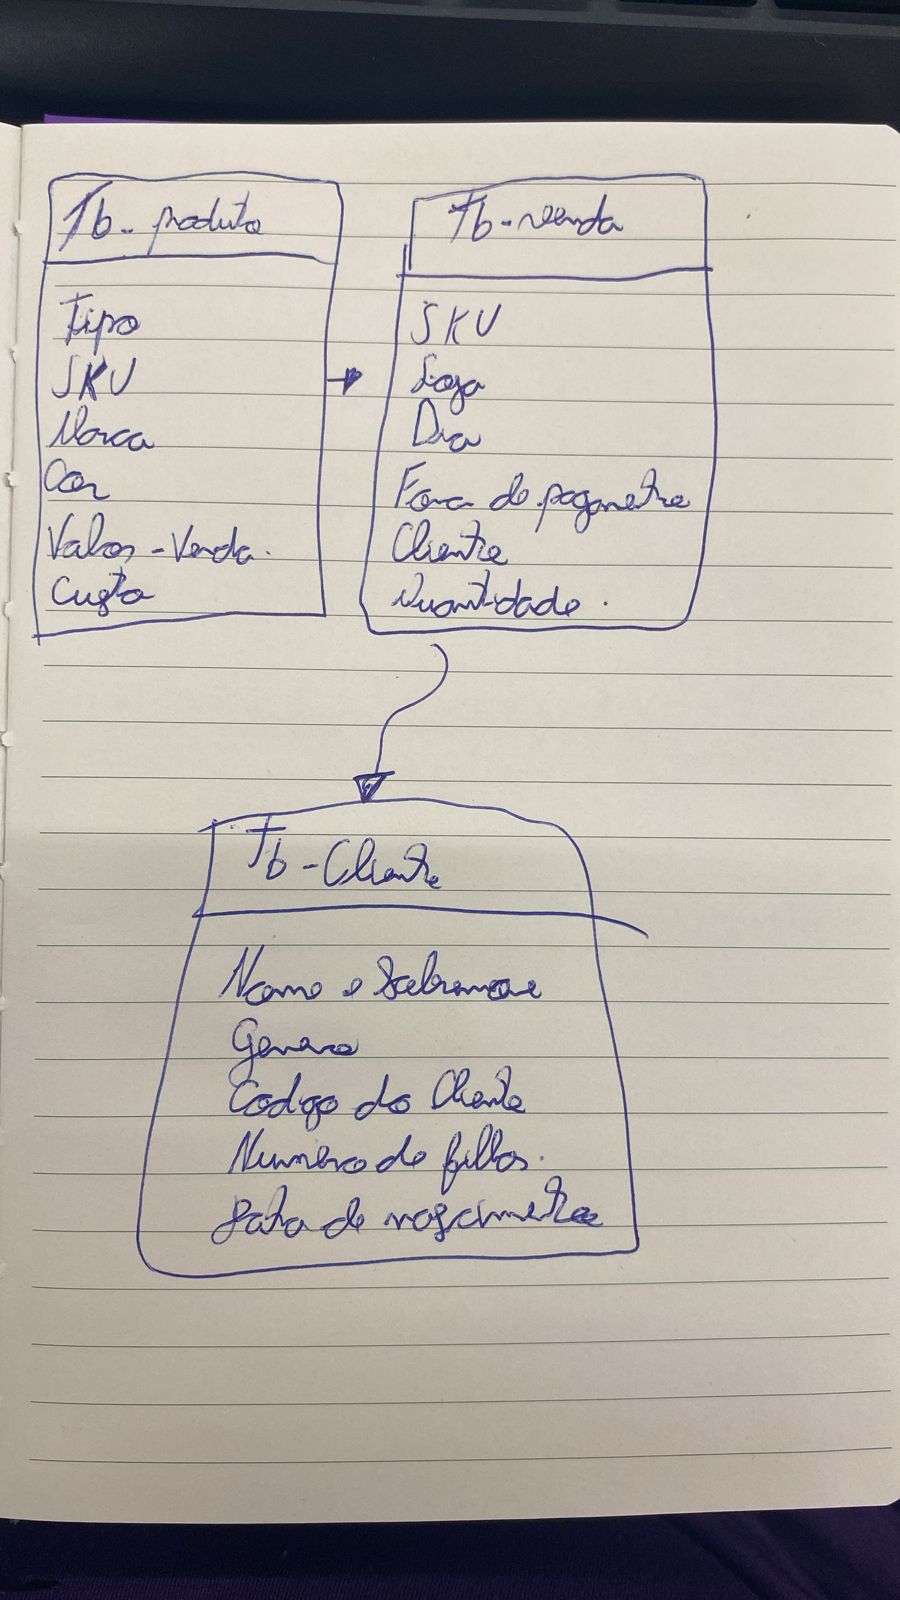 Tb-produto
Tipo
SKU
Marca
Cor
Valor-Venda.
Custo
Tb-venda
SKU
Loja
Dia
de pagamento
Cliente
Quantidade.
Tb-Cliente
Nome e Sobrenome
Genero
Codigo do Cliente
Numero de filhos.
Data de nascimento